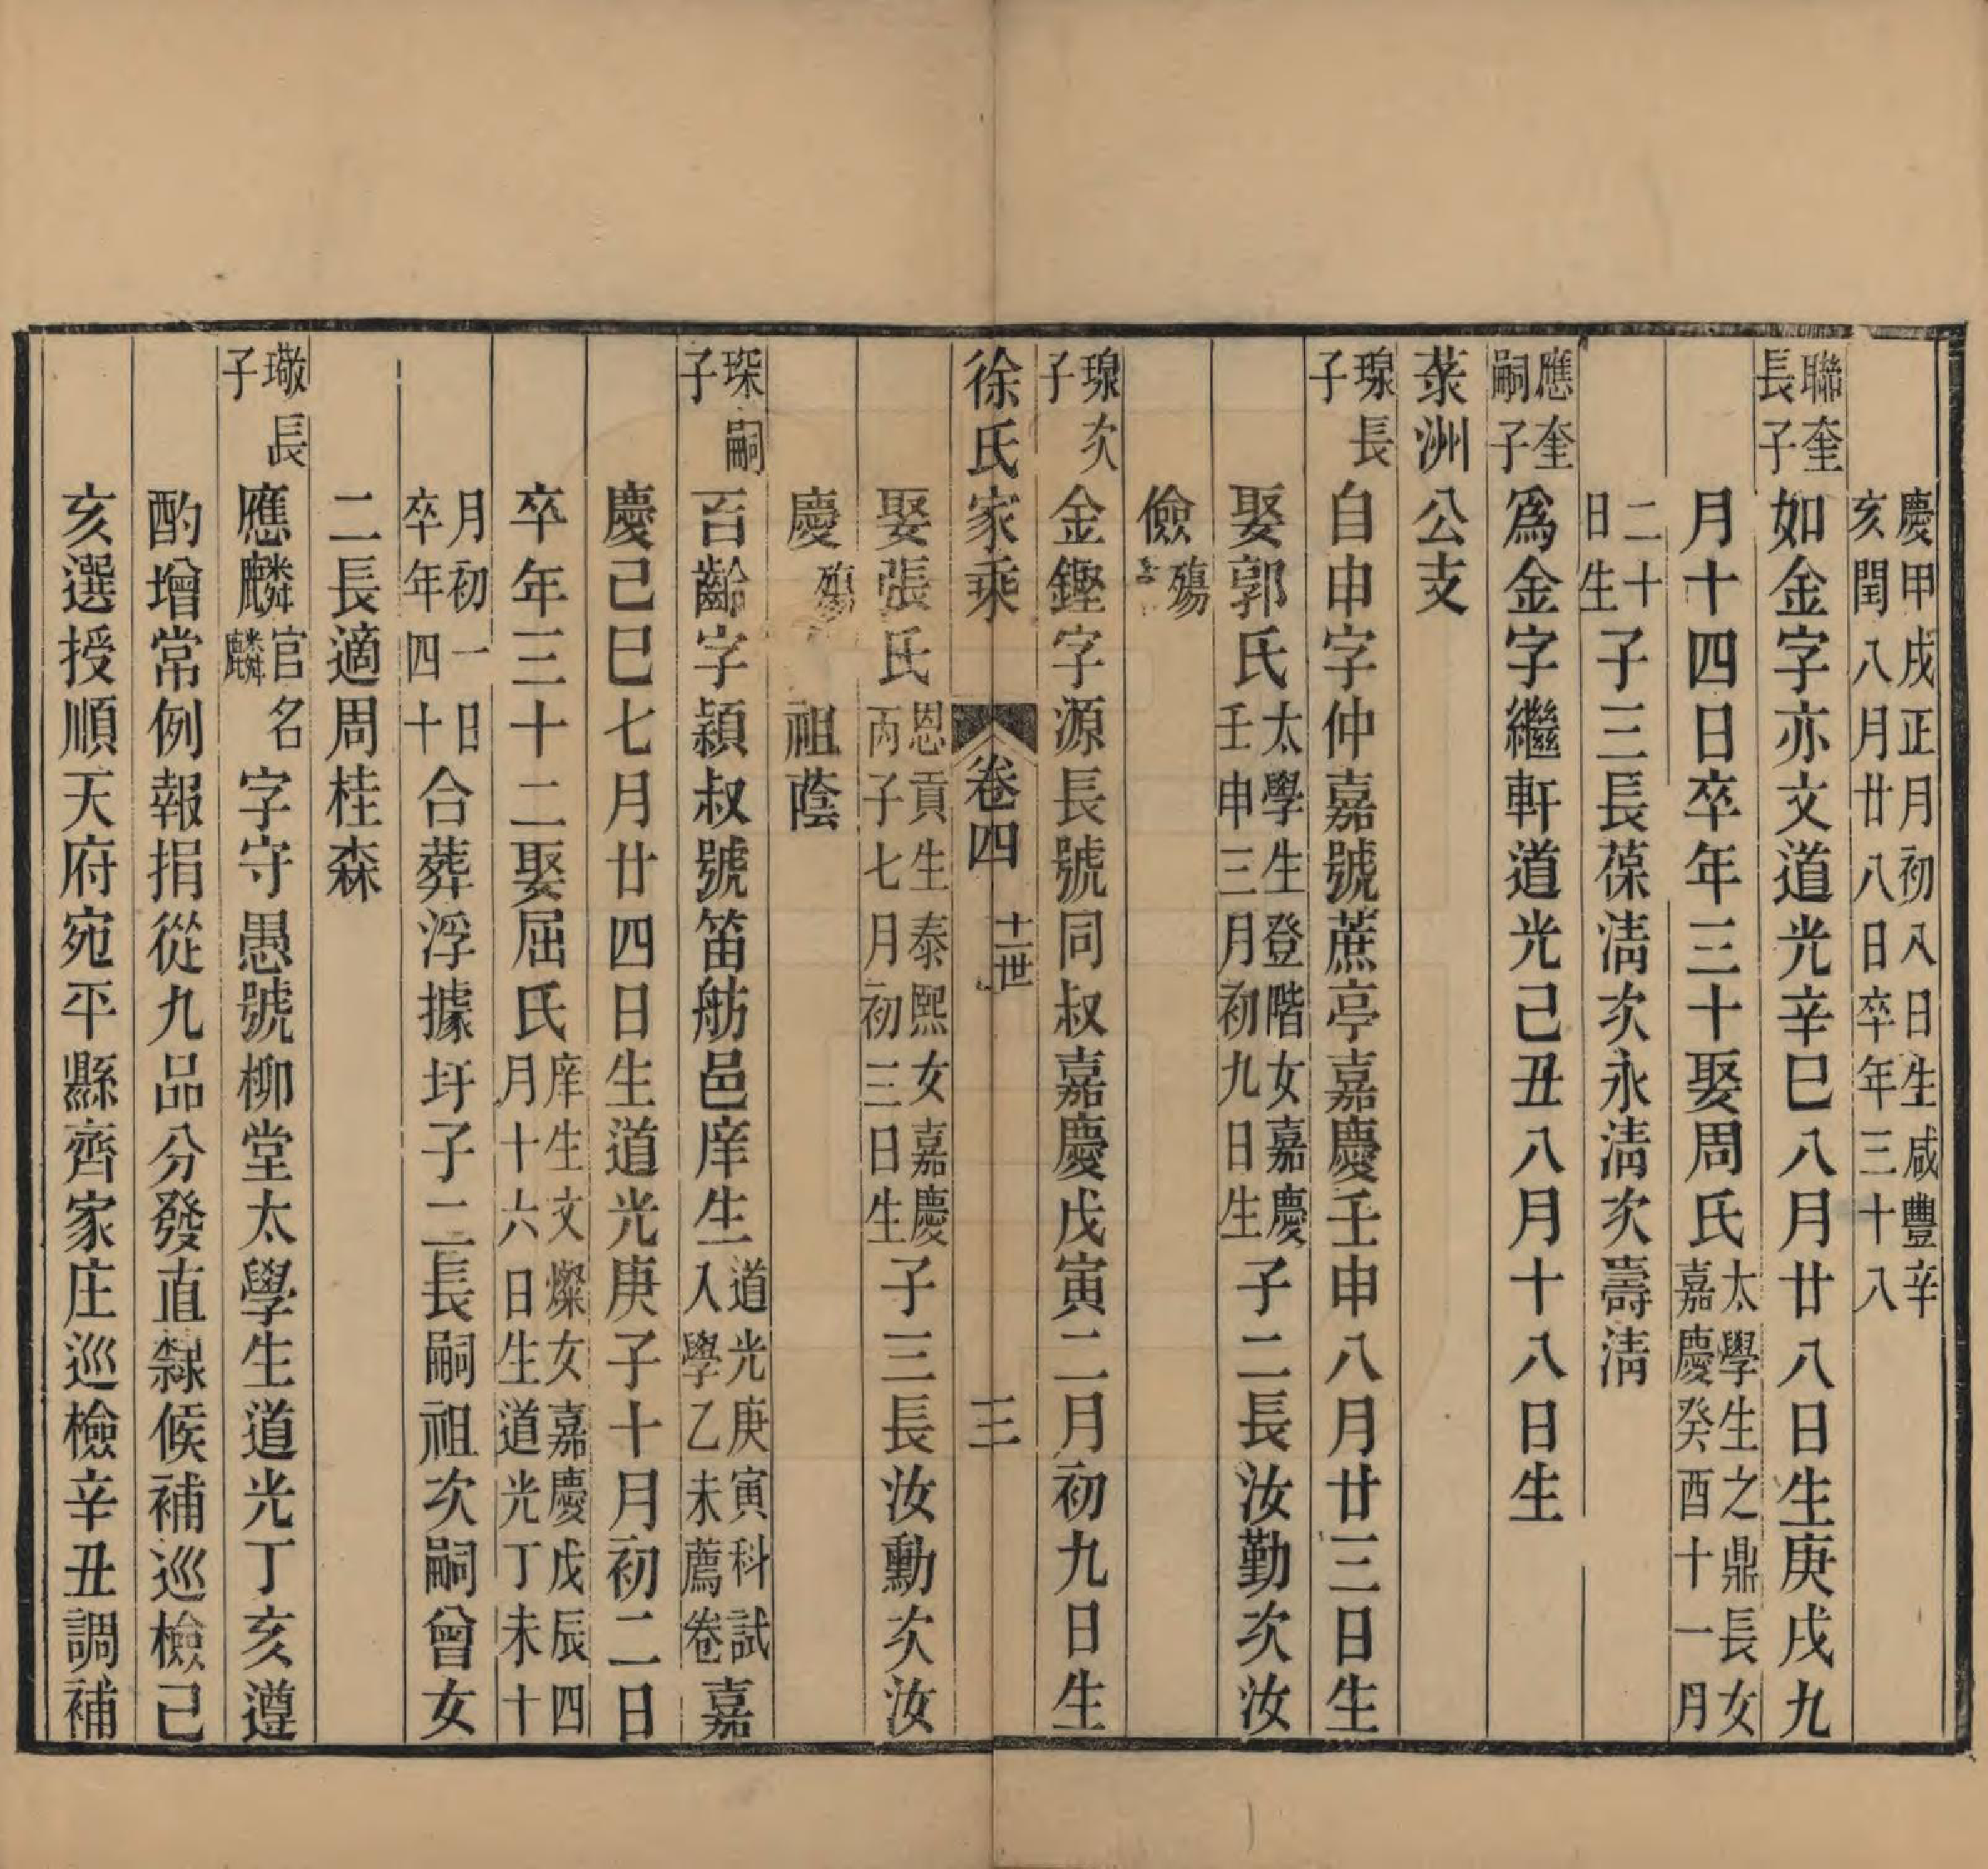 慶甲戌正月初八日生咸豐辛
亥閏八月廿八日卒年三十八
聯奎
長子
如金字亦文道光辛巳八月廿八日生庚戌九
月十四日卒年三十娶周氏
太學生之鼎長女
嘉慶癸酉十一月
二十
日生
子三長葆淸次永淸次壽淸
應奎
嗣子
爲金字繼軒道光己丑八月十八日生
萊洲公支
璟長
子
自申字仲嘉號蔗亭嘉慶壬申八月廿三日生
娶郭氏
太學生登階女嘉慶
壬申三月初九日生
子二長汝勤次汝
儉
殤
璟次
子
金鏗字源長號同叔嘉慶戊寅二月初九日生
徐氏家乘 卷四 十一世 三
娶張氏
恩貢生泰熙女嘉慶
丙子七月初三日生
子三長汝勳次汝
慶
殤
祖蔭
琛嗣
子
百齡字潁叔號笛舫邑庠生
道光庚寅科試
入學乙未薦卷
嘉
慶己巳七月廿四日生道光庚子十月初二日
卒年三十二娶屈氏
庠生文燦女嘉慶戊辰四
月十六日生道光丁未十
月初一日
卒年四十
合葬浮據圩子二長嗣祖次嗣曾女
二長適周桂森
璥長
子
應麟
官名
麟
字守愚號柳堂太學生道光丁亥遵
酌增常例報捐從九品分發直隸候補巡檢己
亥選授順天府宛平縣齊家庄巡檢辛丑調補